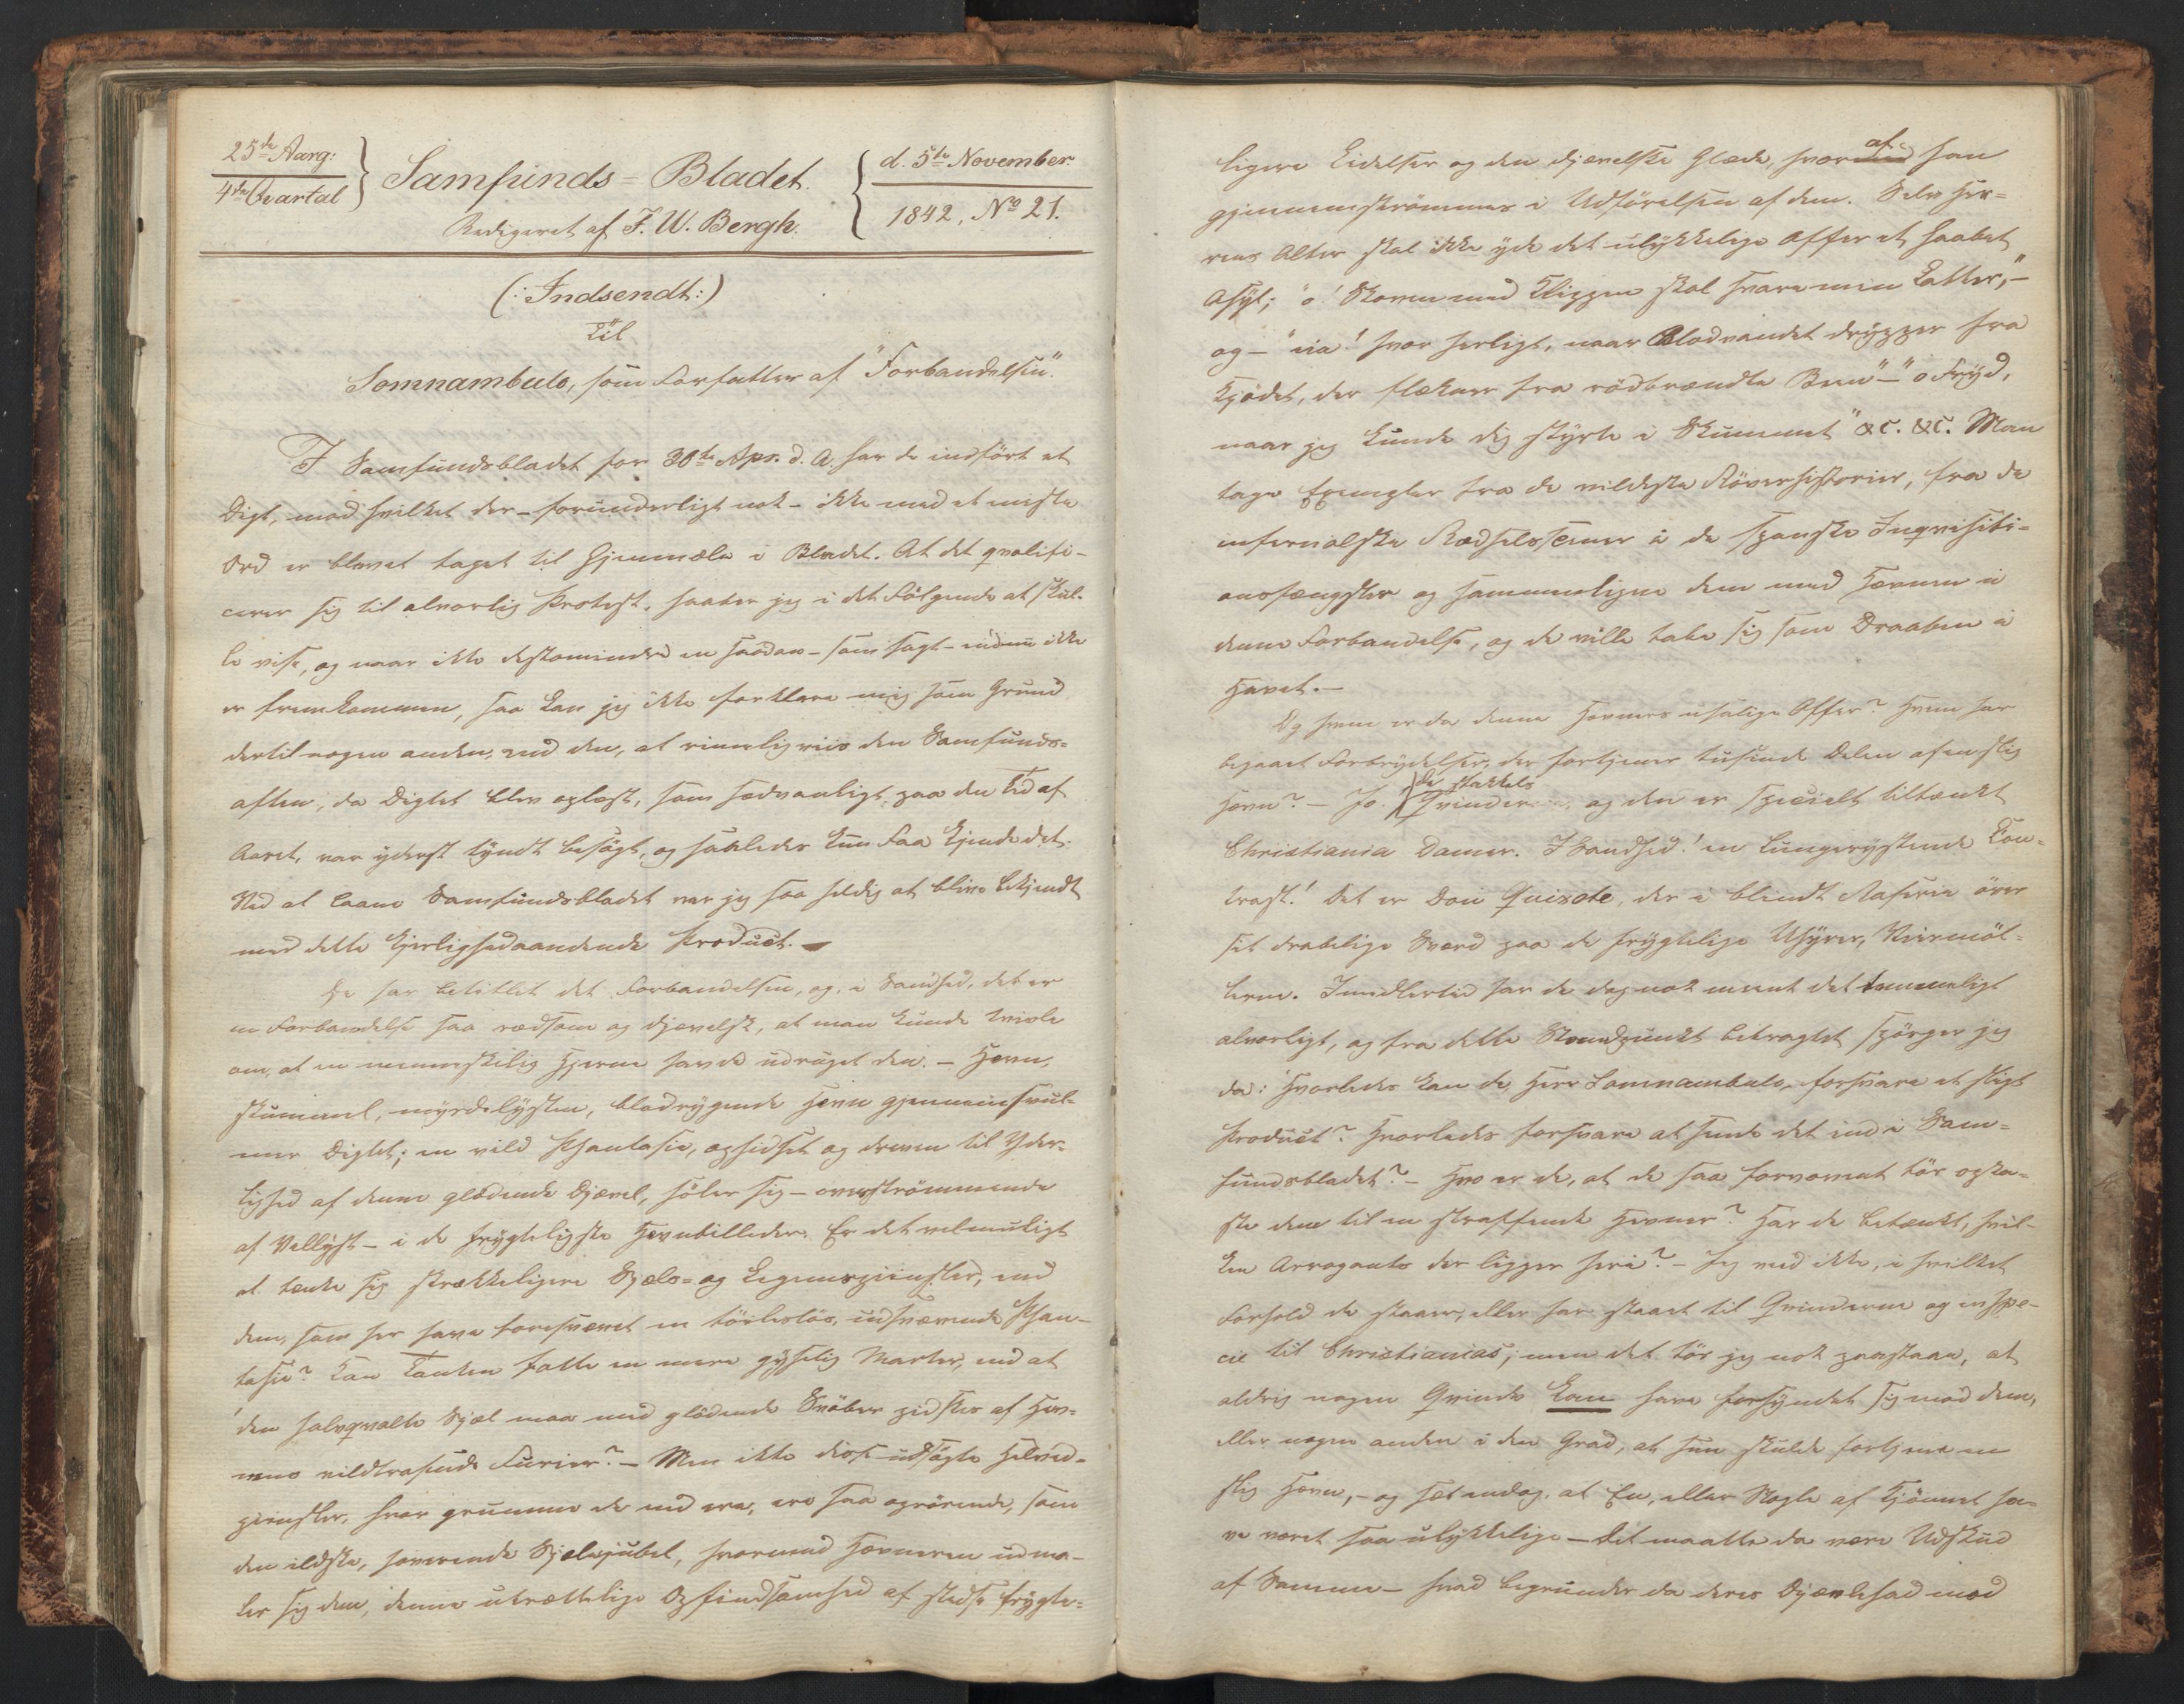 25de Aarg:
4de Qvartal
Samfunds=Bladet.
Redigeret af F. W. Bergh.
d. 5te November
1842, No 21.
(: Indsendt :)
Til
Somnambulo, som Forfatter af "Forbandelsen".
I Samfundsbladet for 30te Apr. d. A. har De indført et
Digt, mod hvilket der – forunderligt nok – ikke med et eneste
Ord er blevet taget til Gjenmæle i Bladet. At det qvalifi-
cerer sig til alvorlig Protest, haaber jeg i det Følgende at skul-
le vise, og naar ikke destomindre en saadan – som sagt – endnu ikke
er fremkommen, saa kan jeg ikke forklare mig som Grund
dertil nogen anden, end den, at rimeligviis den Samfunds=
aften, da Digtet blev oplæst, som sædvanligt paa den Tid af
Aaret, var yderst tyndt besøgt, og saaledes kun Faa kjende det.
Ved at laane Samfundsbladet var jeg saa heldig at blive bekjendt
med dette kjerlighedaandende Product. –
De har betitlet det Forbandelsen, og, i Sandhed, det er
en Forbandelse saa rædsom og djævelsk, at man kunde tvivle
om, at en menneskelig Hjerne havde udruget den. – Hevn,
skummel, myrdelysten, blodrygende Hevn gjennemsvul-
mer Digtet; en vild Phantasie, ophidset og dreven til Yder-
lighed af denne glødende Djævel, föler sig – overströmmende
af Vellyst – i de frygteligste Hevnbilleder. Er det vel muligt
at tænke sig skrækkeligere Sjæls- og Legemspiinsler, end
dem, som her have foresvævet en töilesløs, udsvævende Phan-
tasie? Kan Tanken fatte en mere gyselig Marter, end at
den halvqvalte Sjæl maa med glödende Svöber pidskes af Hev-
nens vildtrasende Furier? – Men ikke disse udsøgte Helved-
piinsler, hvor grumme de end ere, ere saa oprörende, som
den ildske, hoverende Sjælejubel, hvormed Hævneren udma-
ler sig dem, denne utrættelige Opfindsomhed af stedse frygte=
ligere Lidelser og den djævelske Glæde, hvoraf han
gjennemströmmes i Udförelsen af dem. Selv Her-
rens Alter skal ikke yde det ulykkelige Offer et haabet
Asyl; "o! Skoven med Klippen skal svare min Latter," –
og – "eia! hvor herligt, naar Blodvandet drypper fra
Kjödet, der slækner fra rödbrændte Been" – "o Fryd,
naar jeg kunde dig styrte i Skummet" &c. &c. Man
tage Exempler fra de vildeste Röverhistorier, fra de
infernalske Rædselsscener i de spanske Inqvisiti-
onsfængsler og sammenligne dem med Hævnen i
denne Forbandelse, og de ville tabe sig som Draaben i
Havet. –
Og hvem er da denne Hevners usalige Offer? Hvem har
begaaet Forbrydelser, der fortjener tusinde Delen af en slig
Hevn? – Jo. de stakkels Qvinder og den er specielt tiltænkt
Christiania Damer. I Sandhed! en lungerystende Con-
trast! Det er Don Quixote, der i blindt Raserie över
sit drabelige Sværd paa de frygtelige Uhyrer, Veirmöl-
lerne. Imidlertid har De dog nok meent det temmeligt
alvorligt, og fra dette Standpunkt betragtet spörger jeg
da: Hvorledes kan De, Herr Somnambulo, forsvare et sligt
Product? Hvorledes forsvare at sende det ind i Sam=
fundsbladet? – Hvo er De, at De saa formoent tör opka-
ste Dem til en straffende Hevner? Har De betænkt, hvil-
ken Arrogants der ligger heri? – Jeg veed ikke, i hvilket
Forhold De staaer, eller har staaet til Qvinderne og in spe-
cie til Christianias; men det tör jeg nok paastaae, at
aldrig nogen Qvinde kan have forsyndet sig mod Dem,
eller nogen anden i den Grad, at hun skulde fortjene en
slig Hævn, – og sæt endog, at En, eller Nogle af Kjönnet ha-
ve været saa ulykkelige – det maatte da være Udskud
af Samme – hvad begrunder da Deres Djævlehad mod